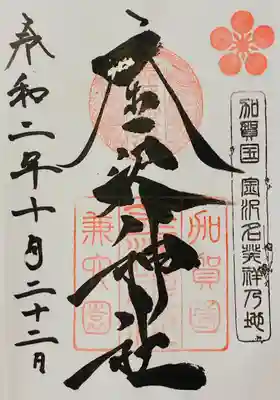 加賀国 金沢名発祥乃地
金沢神社
加賀國
兼六園
令和二年十月二十二日